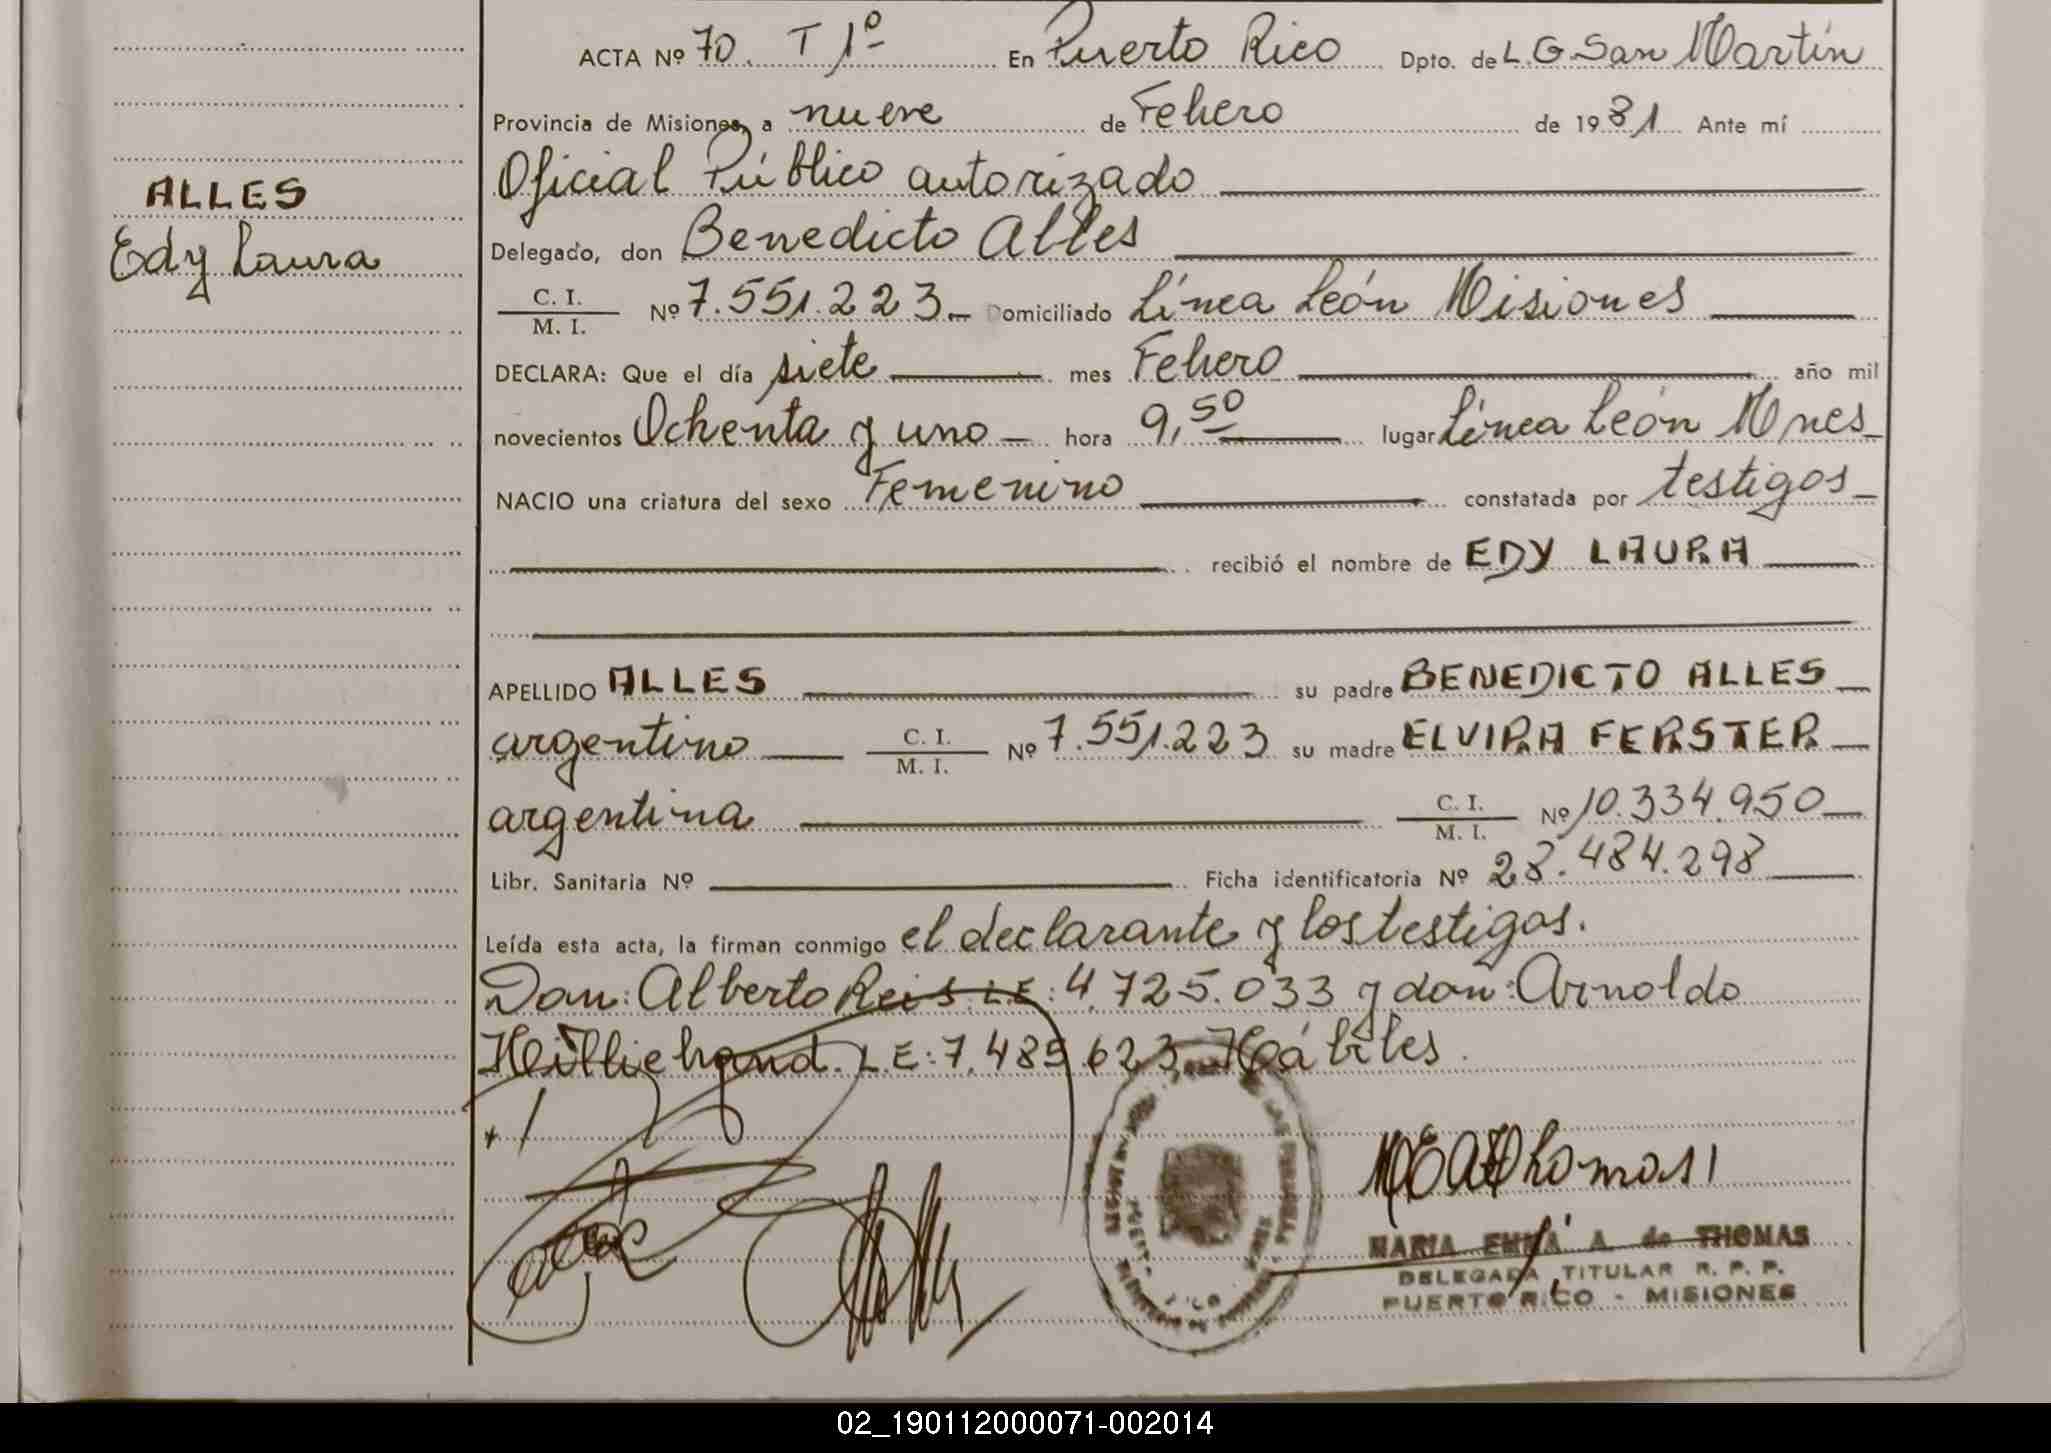 ALLES
Edy Laura
ACTA Nº 70. T 1º En Puerto Rico Dpto. de L. G San Martín
Provincia de Misiones, a nueve de Febrero de 1981 Ante mí
Oficial Público autorizado
Delegado, don Benedicto Alles
C. I.
M. I. Nº 7.551.223 Domiciliado Línea León Misiones
DECLARA: Que el día siete mes Febrero año mil
novecientos Ochenta y uno hora 9,50 lugar Línea León Mnes
NACIO una criatura del sexo Femenino constatada por testigos
recibió el nombre de EDY LAURA
APELLIDO ALLES su padre BENEDICTO ALLES
argentino C. I.
M. I. Nº 7.551.223 su madre ELVIRA FERSTER
argentina C. I.
M. I. Nº 10.334.950
Libr. Sanitaria Nº Ficha identificatoria Nº 28.484.298
Leída esta acta, la firman conmigo el declarante y los testigos.
Don: Alberto Reis L.E: 4.725.033 y don: Arnoldo
L.E: 7.485.623 Hábiles.
MARIA EMMA A. de THOMAS
DELEGADA TITULAR R. P. P.
PUERTO RICO - MISIONES
02_190112000071-002014